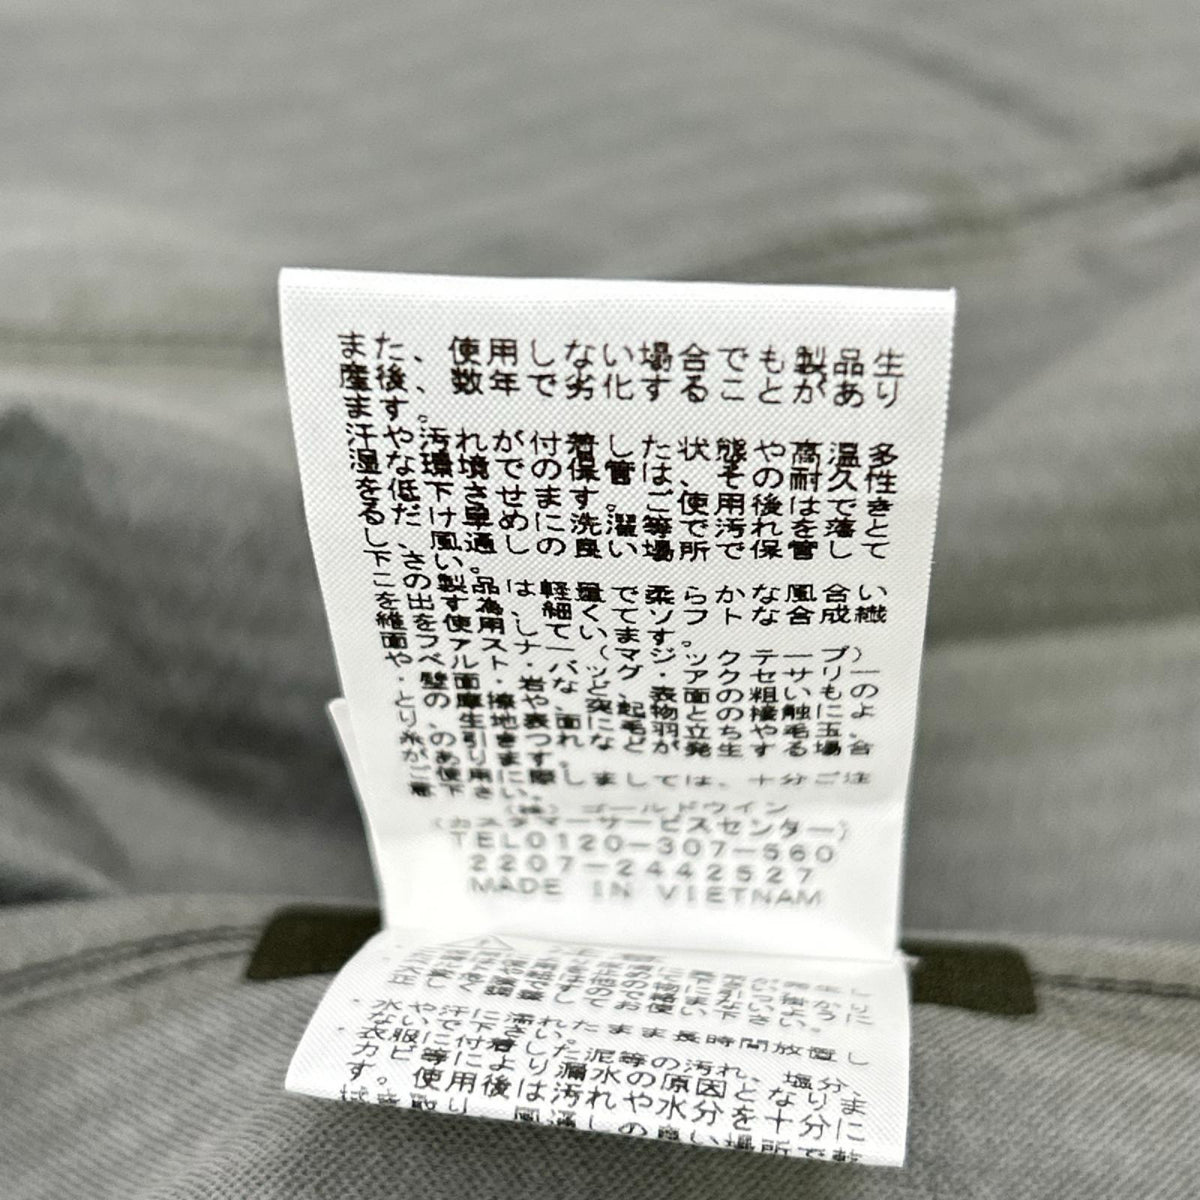 また、使用しない場合でも製品生
産後、数年で劣化することがあり
ます。
汗や汚れが付着した状態や高温多
湿な環境での保管は、その耐久性
を低下させます。ご使用後はできと
るだけ早めに洗濯等で汚れを落と
し、風通しの良い場所で保管して
下さい。
この製品は、軽量で柔らかな風合い
を出す為、細くてソフトな合成繊
維を使用しています。
面ファスナー(マジックテープ)
やベルト・バッグ・アクセサリー
・壁面・岩など、表面の粗いもの
との摩擦や、突起物との接触によ
り、生地表面に毛羽立ちや毛玉、
糸の引きつれなどが発生する場合
があります。
ご使用に際しましては、十分ご注
意下さい。
(株)ゴールドウイン
(カスタマーサービスセンター)
TEL0120-307-560
2207-2442527
MADE IN VIETNAM
・水や汗に濡れたまま長時間放置し
ないで下さい。
・衣服に付着した泥等の汚れ、塩分、
カビ等により漏水の原因となりま
す。使用後は汚れや水分を十分に
拭き取り、風通しの良い場所で乾